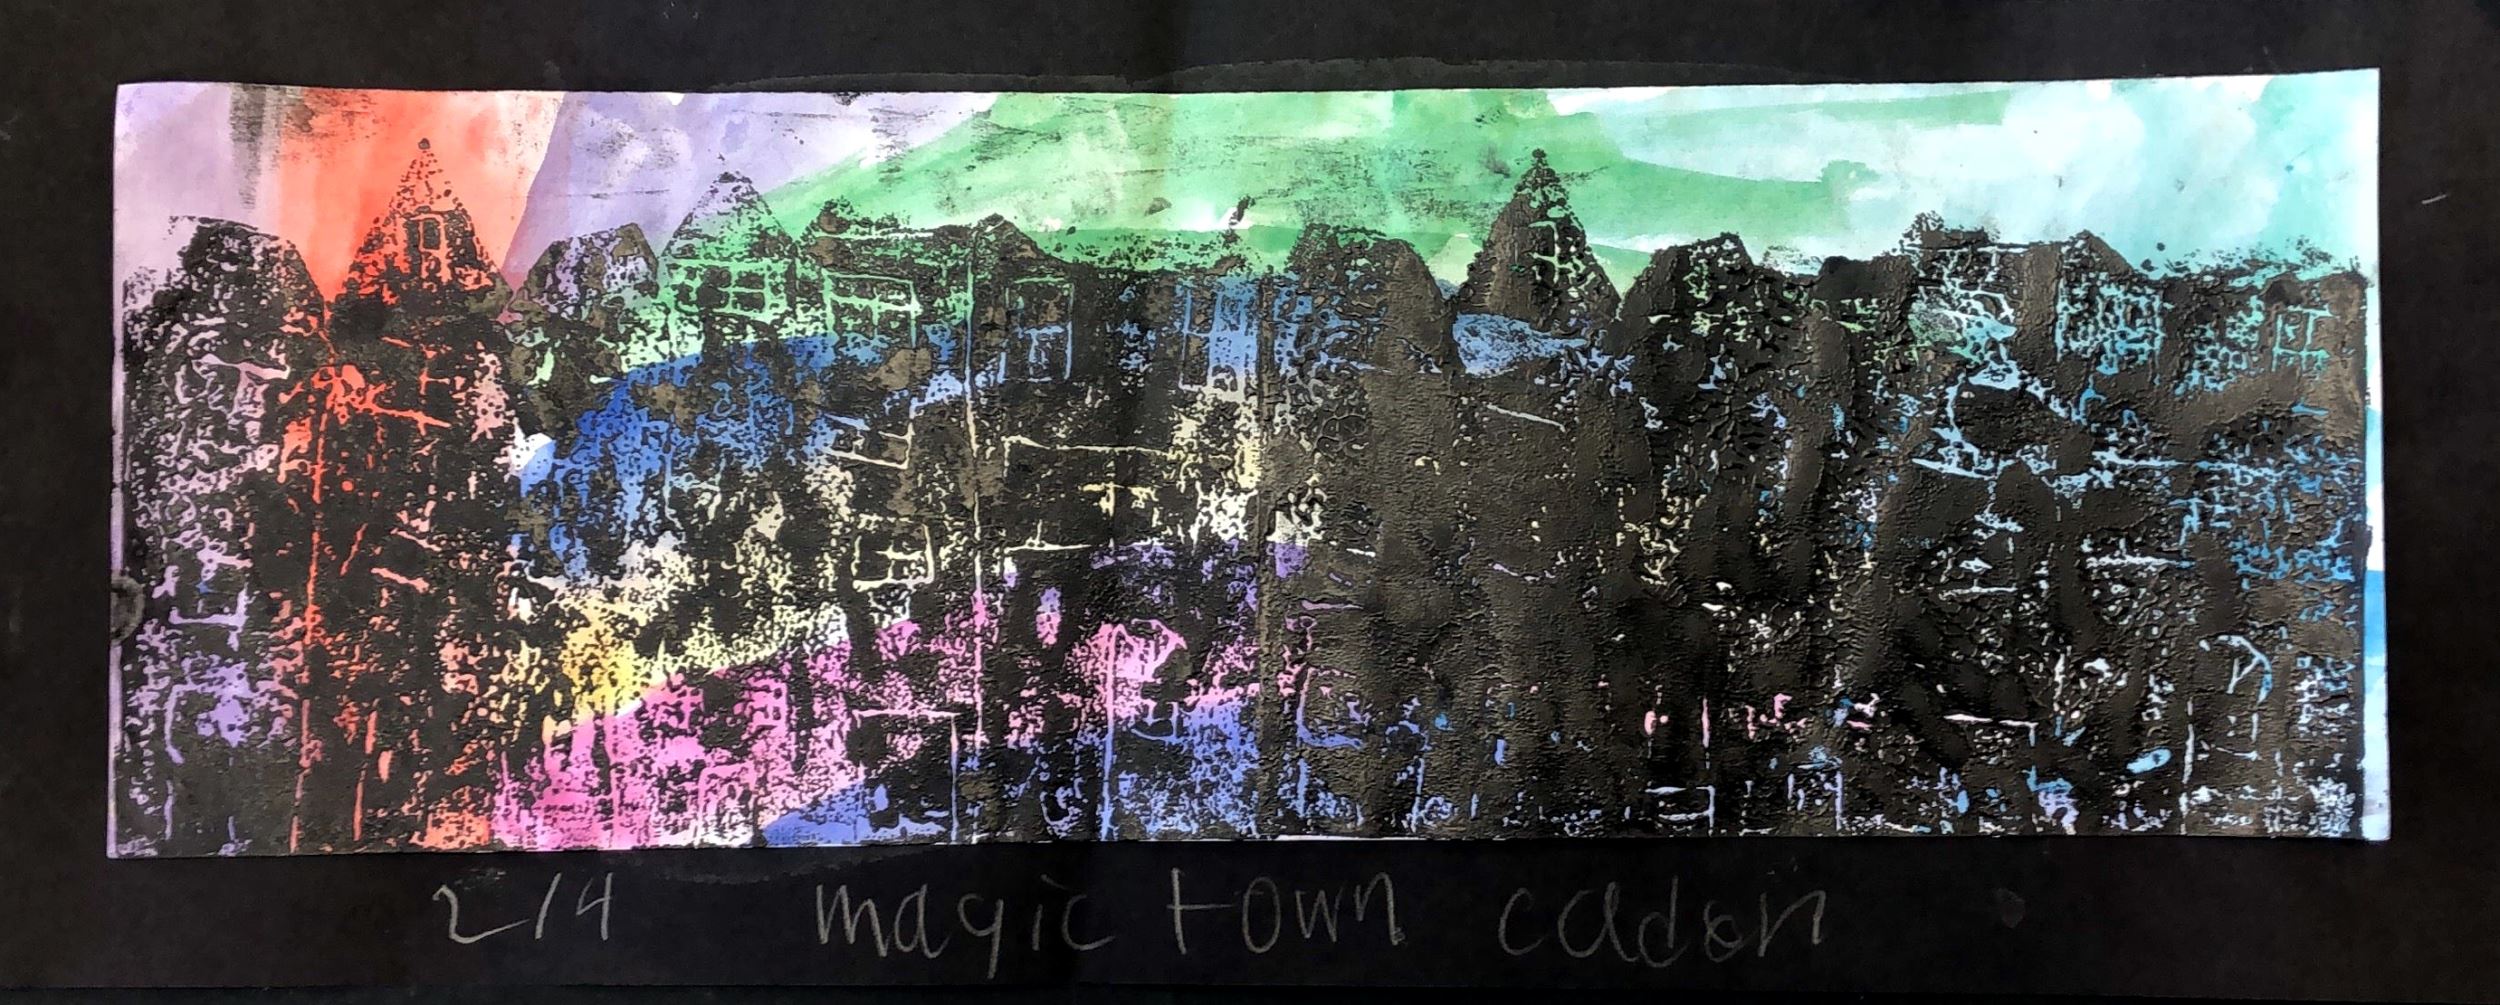 2/4 magic town cadon